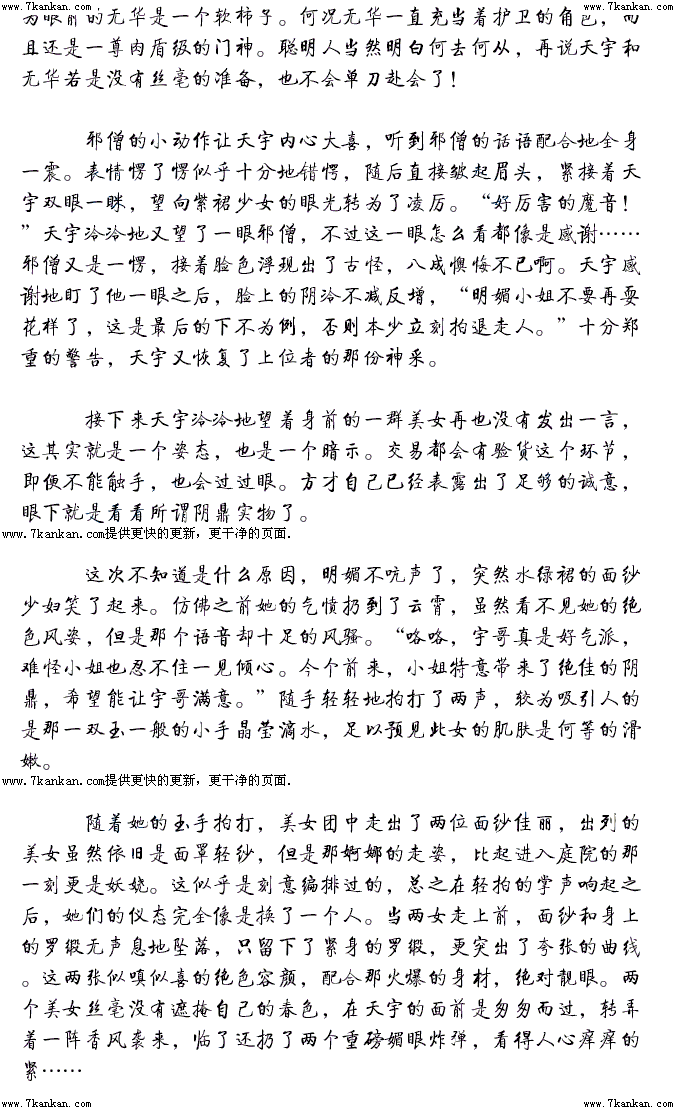 www.7kankan.com www.7kankan.com
为眼前的无华是一个软柿子。何况无华一直充当着护卫的角色，而
且还是一尊肉盾级的门神。聪明人当然明白何去何从，再说天宇和
无华若是没有丝毫的准备，也不会单刀赴会了！
邪僧的小动作让天宇内心大喜，听到邪僧的话语配合地全身
一震。表情愣了愣似乎十分地错愕，随后直接皱起眉头，紧接着天
宇双眼一眯，望向紫裙少女的眼光转为了凌厉。“好厉害的魔音！
”天宇冷冷地又望了一眼邪僧，不过这一眼怎么看都像是感谢……
邪僧又是一愣，接着脸色浮现出了古怪，八成懊悔不已啊。天宇感
谢地盯了他一眼之后，脸上的阴冷不减反增，“明媚小姐不要再耍
花样了，这是最后的下不为例，否则本少立刻拍退走人。”十分郑
重的警告，天宇又恢复了上位者的那份神采。
接下来天宇冷冷地望着身前的一群美女再也没有发出一言，
这其实就是一个姿态，也是一个暗示。交易都会有验货这个环节，
即便不能触手，也会过过眼。方才自己已经表露出了足够的诚意，
眼下就是看看所谓阴鼎实物了。
www.7kankan.com提供更快的更新，更干净的页面.
这次不知道是什么原因，明媚不吭声了，突然水绿裙的面纱
少妇笑了起来。仿佛之前她的气愤扔到了云霄，虽然看不见她的绝
色风姿，但是那个语音却十足的风骚。“咯咯，宇哥真是好气派，
难怪小姐也忍不住一见倾心。今个前来，小姐特意带来了绝佳的阴
鼎，希望能让宇哥满意。”随手轻轻地拍打了两声，较为吸引人的
是那一双玉一般的小手晶莹滴水，足以预见此女的肌肤是何等的滑
嫩。
www.7kankan.com提供更快的更新，更干净的页面.
随着她的玉手拍打，美女团中走出了两位面纱佳丽，出列的
美女虽然依旧是面罩轻纱，但是那婀娜的走姿，比起进入庭院的那
一刻更是妖娆。这似乎是刻意编排过的，总之在轻拍的掌声响起之
后，她们的仪态完全像是换了一个人。当两女走上前，面纱和身上
的罗缎无声息地坠落，只留下了紧身的罗缎，更突出了夸张的曲线
。这两张似嗔似喜的绝色容颜，配合那火爆的身材，绝对靓眼。两
个美女丝毫没有遮掩自己的春色，在天宇的面前是匆匆而过，转弄
着一阵香风袭来，临了还扔了两个重磅媚眼炸弹，看得人心痒痒的
紧……
www.7kankan.com www.7kankan.com